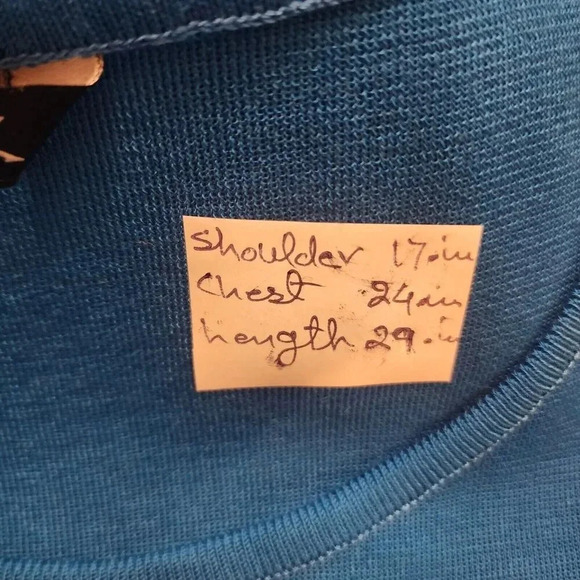 Shoulder 17.in
Chest 24.in
Length 29.in